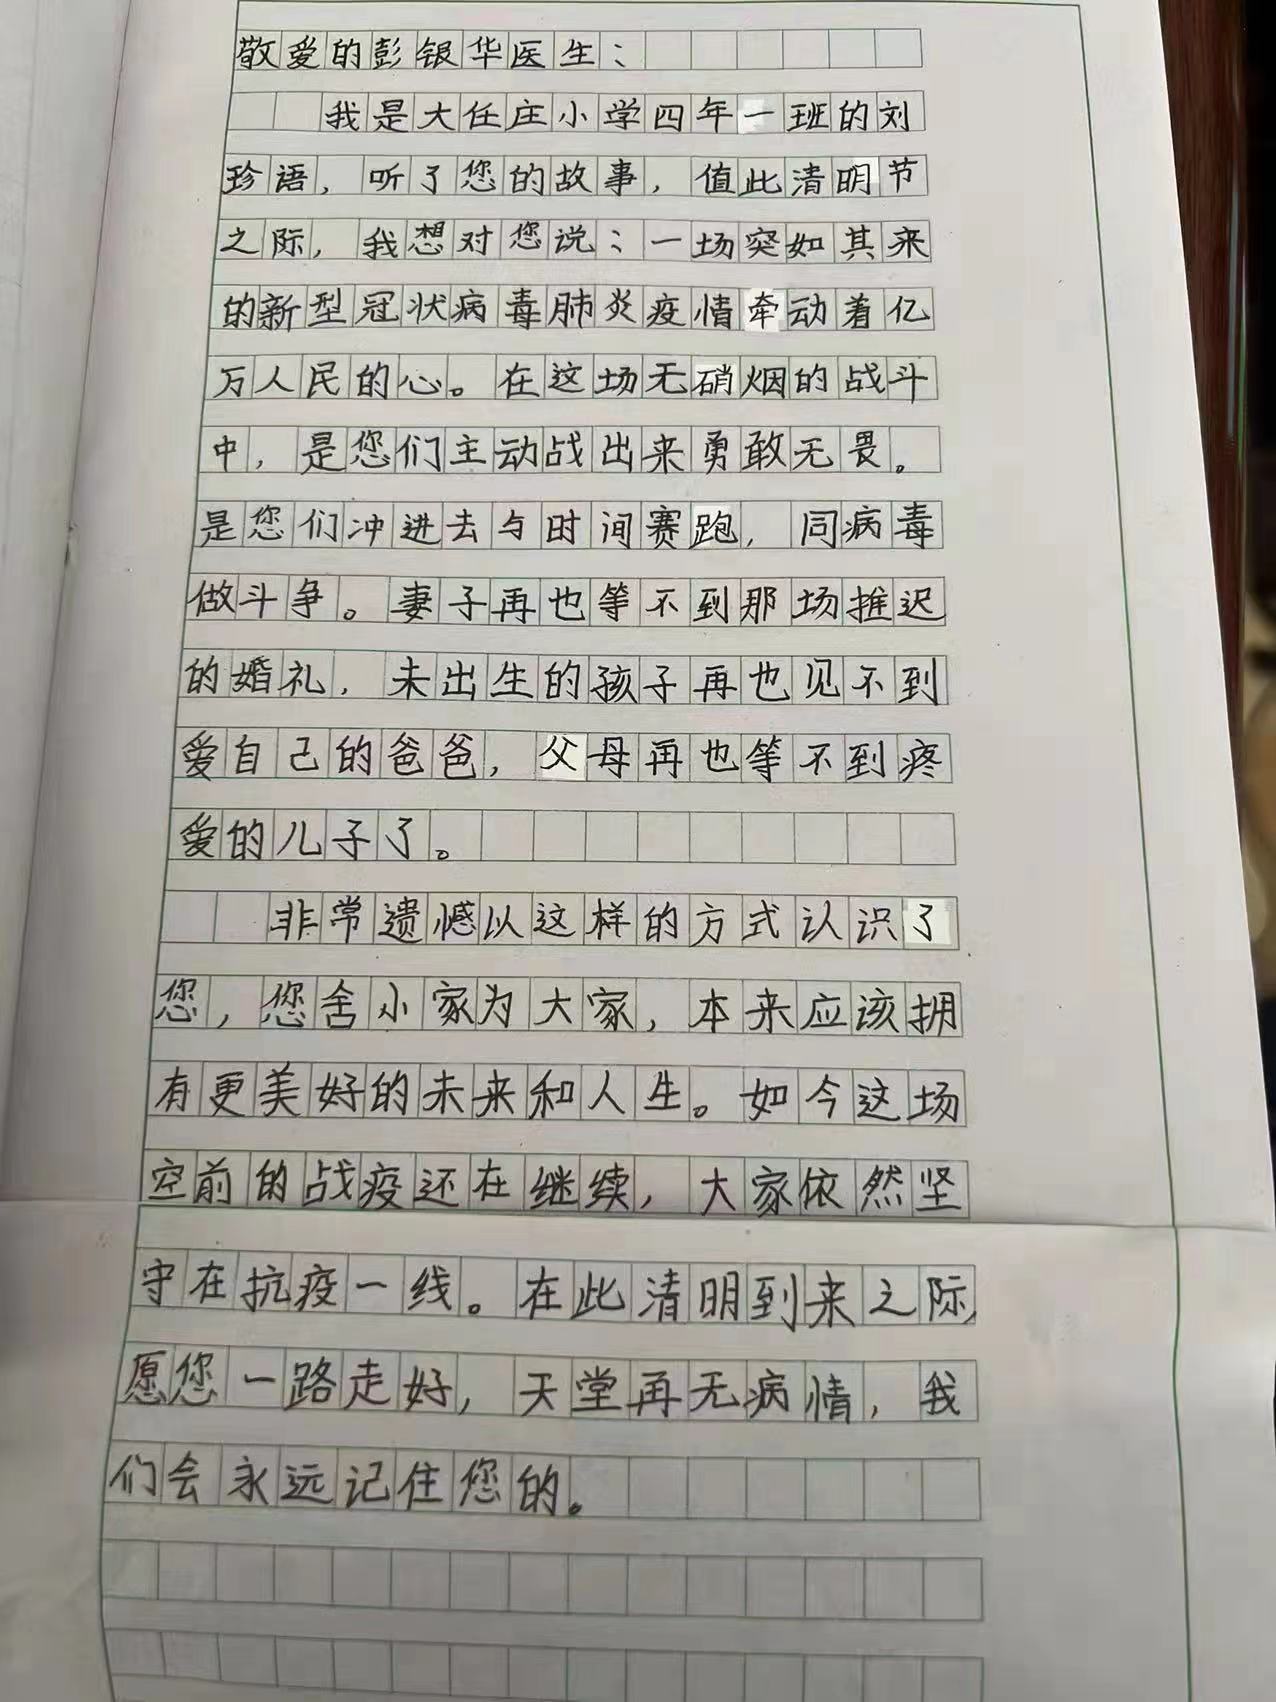 敬爱的彭银华医生：
我是大任庄小学四年一班的刘
珍语，听了您的故事，值此清明节
之际，我想对您说：一场突如其来
的新型冠状病毒肺炎疫情牵动着亿
万人民的心。在这场无硝烟的战斗
中，是您们主动战出来勇敢无畏。
是您们冲进去与时间赛跑，同病毒
做斗争。妻子再也等不到那场推迟
的婚礼，未出生的孩子再也见不到
爱自己的爸爸，父母再也等不到疼
爱的儿子了。
非常遗憾以这样的方式认识了
您，您舍小家为大家，本来应该拥
有更美好的未来和人生。如今这场
空前的战疫还在继续，大家依然坚
守在抗疫一线。在此清明到来之际，
愿您一路走好，天堂再无病情，我
们会永远记住您的。